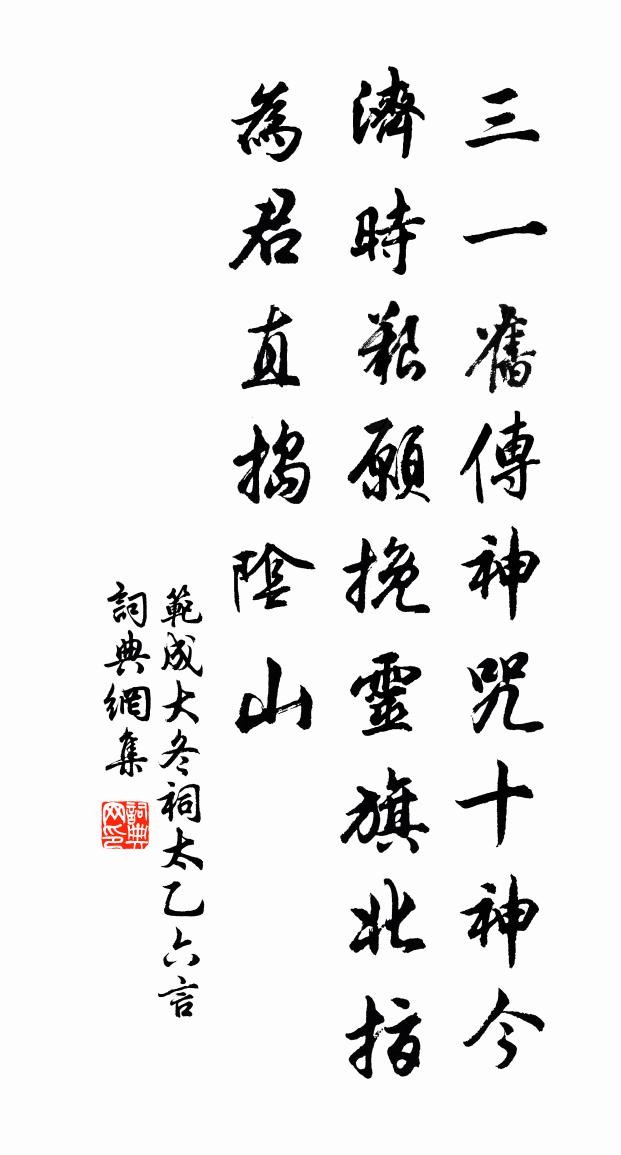 三一舊傳神咒十神今
濟時艱願挽靈旗北指
為君直搗陰山
範成大冬祠太乙六言
詞典網集
詞典网印